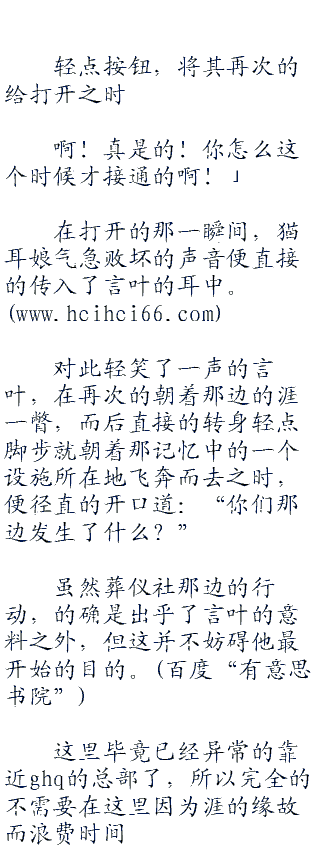 轻点按钮，将其再次的
给打开之时
啊！真是的！你怎么这
个时候才接通的啊！」
在打开的那一瞬间，猫
耳娘气急败坏的声音便直接
的传入了言叶的耳中。
(www.hcihci66.com)
对此轻笑了一声的言
叶，在再次的朝着那边的涯
一瞥，而后直接的转身轻点
脚步就朝着那记忆中的一个
设施所在地飞奔而去之时，
便径直的开口道：“你们那
边发生了什么？”
虽然葬仪社那边的行
动，的确是出乎了言叶的意
料之外，但这并不妨碍他最
开始的目的。(百度“有意思
书院”)
这里毕竟已经异常的靠
近ghq的总部了，所以完全的
不需要在这里因为涯的缘故
而浪费时间